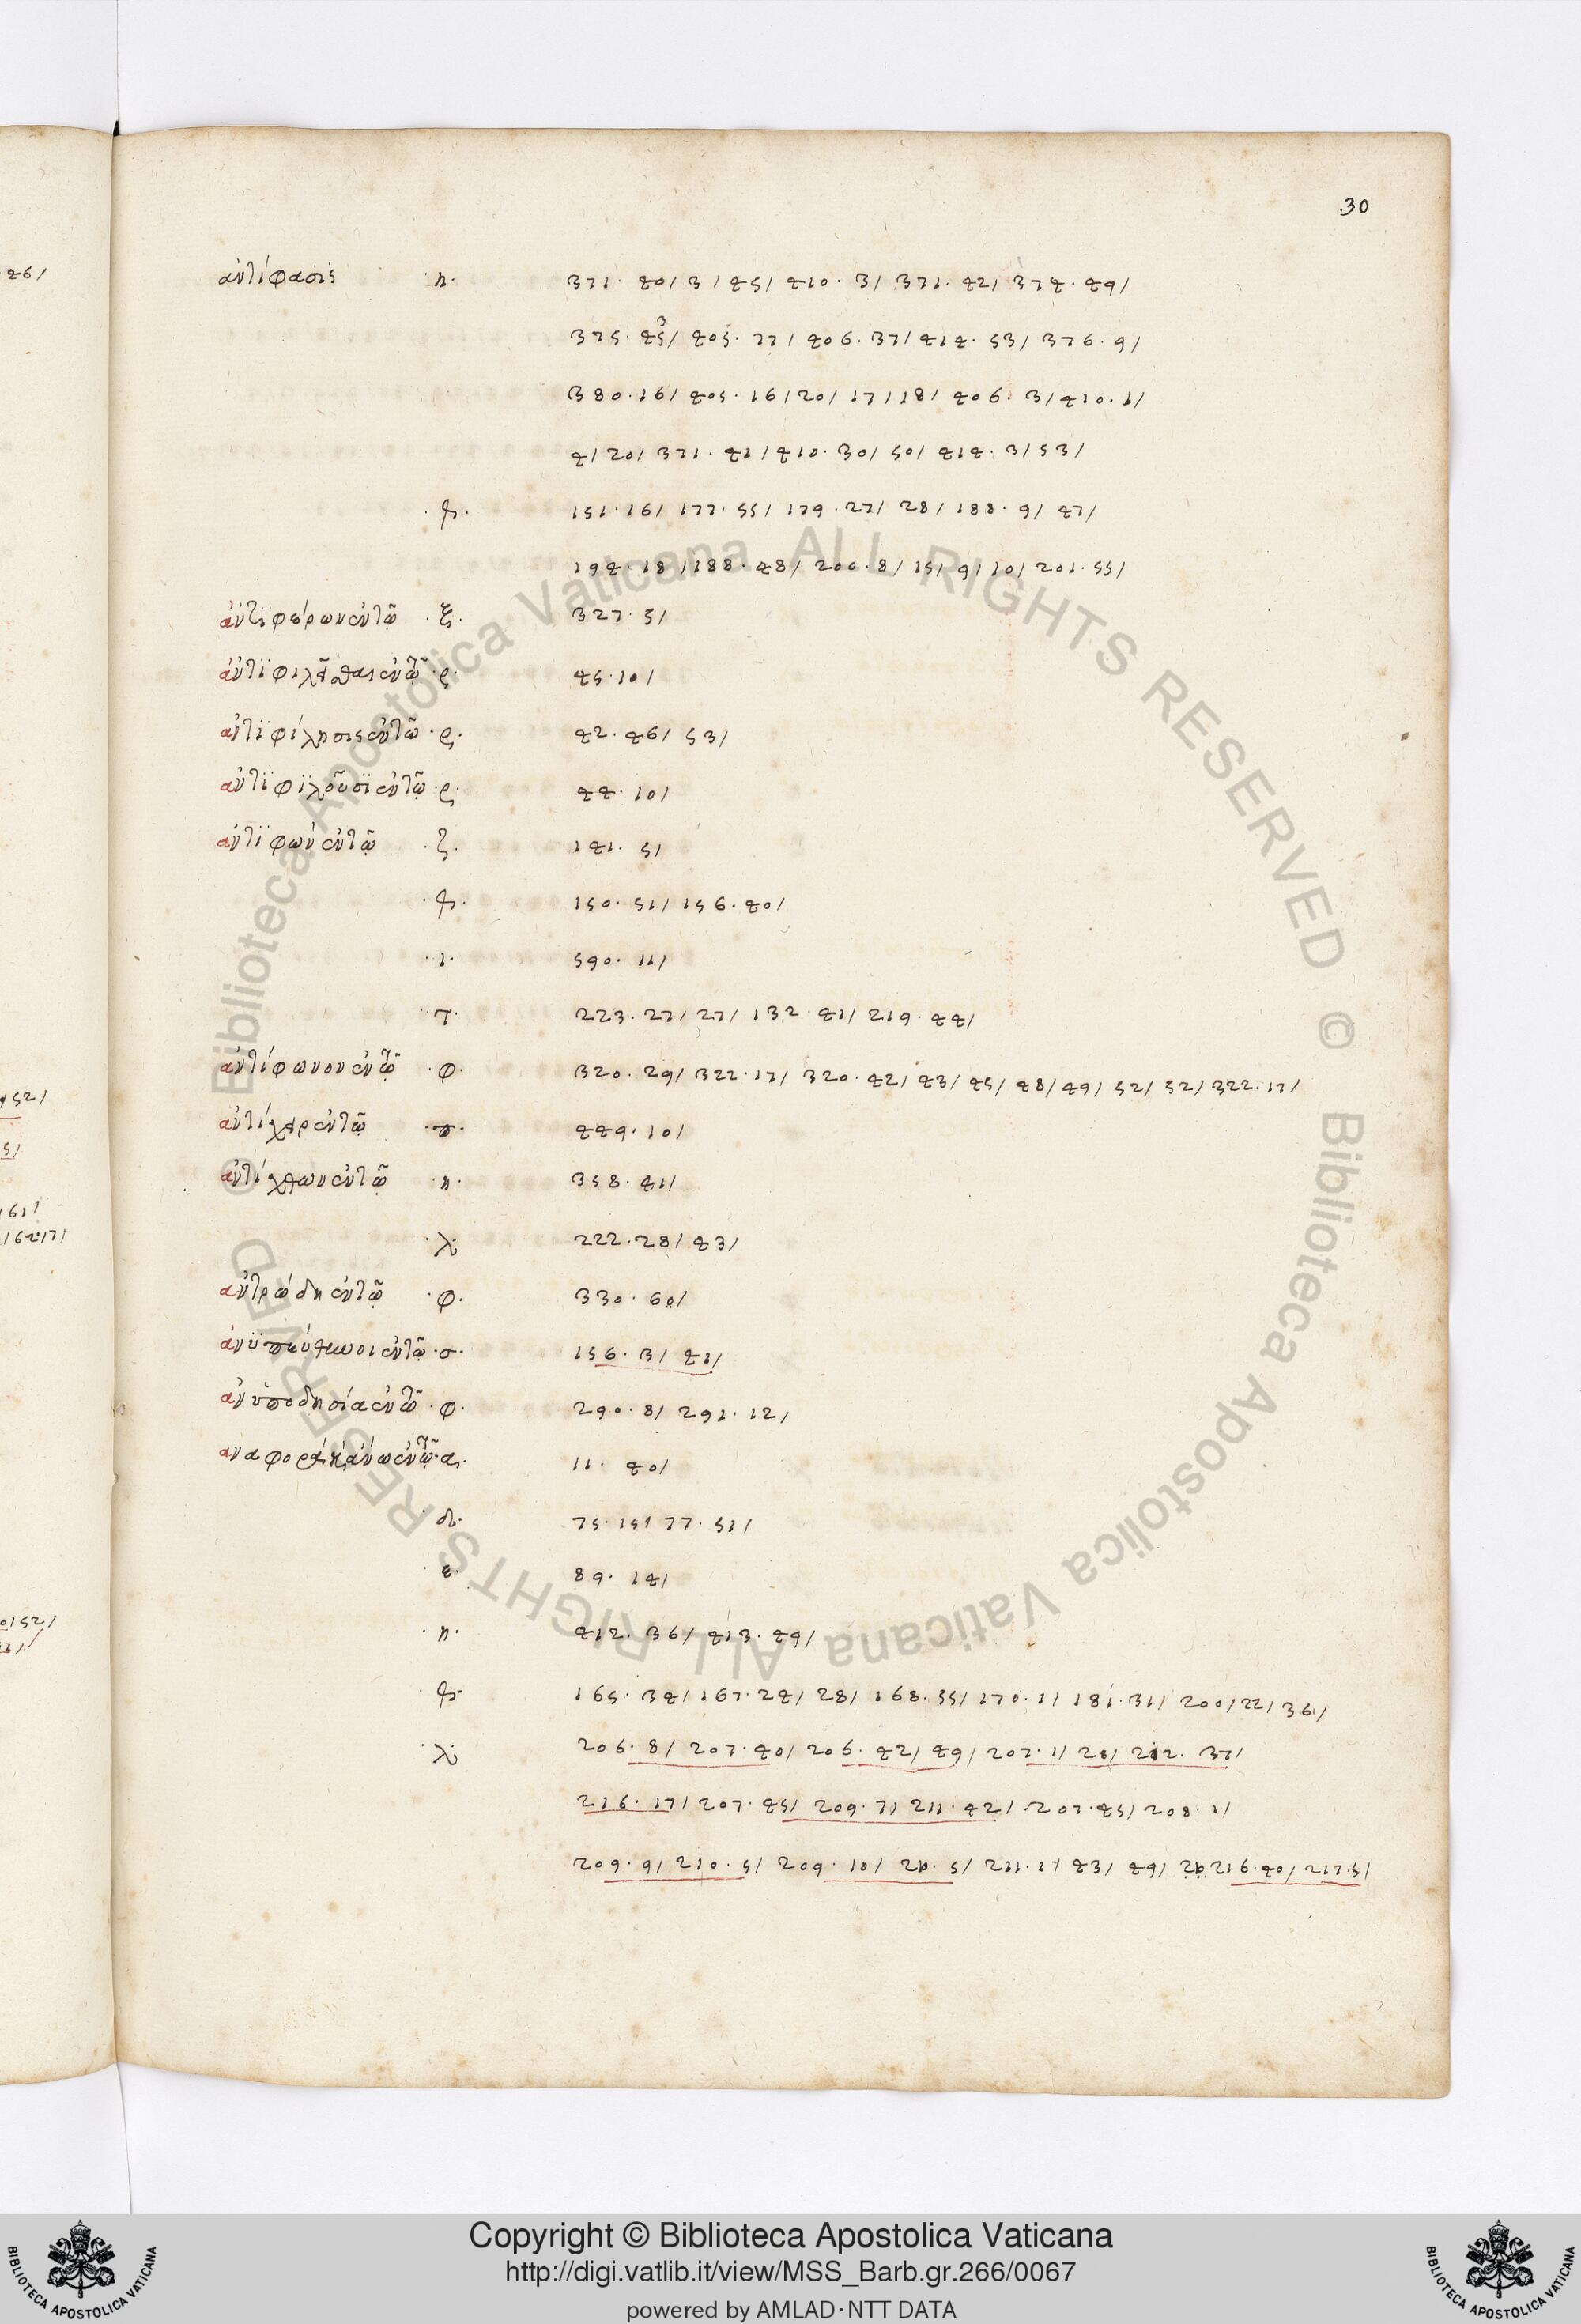 30
ἀντίφασις ·η· 371· 40/ 3/ 45/ 410· 3/ 371· 42/ 374· 49/
375· 45/ 405· 77/ 406· 37/ 414· 53/ 376· 9/
380· 16/ 405· 16/ 20/ 17/ 18/ 406· 3/ 410· 1/
4/ 20/ 371· 41/ 410· 30/ 50/ 414· 3/ 53/
151· 16/ 177· 55/ 179· 27/ 28/ 188· 9/ 47/
194· 18/ 188· 48/ 200· 8/ 15/ 9/ 10/ 201· 55/
ἀντιφέρων ἐν τῷ ·ξ· 327· 5/
ἀντιφιλεῖσθαι ἐν τῷ ·ρ· 45· 10/
ἀντιφίλησις ἐν τῷ ·ρ· 42· 46/ 53/
ἀντιφιλοῦσι ἐν τῷ ·ρ· 44· 10/
ἀντιφῶν ἐν τῷ ·ζ· 141· 5/
150· 51/ 156· 40/
·ι· 590· 11/
·τ· 223· 27/ 27/ 132· 41/ 219· 44/
ἀντίφωνον ἐν τῷ ·φ· 320· 29/ 322· 17/ 320· 42/ 43/ 45/ 48/ 49/ 52/ 52/ 322· 17/
ἀντίχειρ ἐν τῷ ·π· 449· 10/
ἀντίχθων ἐν τῷ ·η· 358· 41/
·λ· 222· 28/ 43/
ἀντρώδη ἐν τῷ ·φ· 330· 60/
ἀνυπεύθυνοι ἐν τῷ ·σ· 156· 3/ 41/
ἀνυποδησία ἐν τῷ ·φ· 290· 8/ 291· 12/
ἀναφορά κ ἄνω ἐν τῷ ·α· 11· 40/
·δ· 75· 15/ 77· 51/
·ε· 89· 14/
·η· 412· 36/ 413· 49/
165· 34/ 167· 24/ 28/ 168· 35/ 170· 1/ 181· 31/ 200/ 22/ 36/
·λ· 206· 8/ 207· 40/ 206· 42/ 49/ 207· 1/ 28/ 212· 37/
216· 17/ 207· 45/ 209· 7/ 211· 42/ 207· 45/ 208· 1/
209· 9/ 210· 5/ 209· 10/ 210· 5/ 211· 1/ 43/ 49/ 216· 40/ 217· 5/
26/
152/
5/
161/
162·17/
0/52/
Biblioteca Apostolica Vaticana ALL RIGHTS RESERVED ©
Biblioteca Apostolica Vaticana ALL RIGHTS RESERVED ©
Copyright © Biblioteca Apostolica Vaticana
http://digi.vatlib.it/view/MSS_Barb.gr.266/0067
powered by AMLAD·NTT DATA
BIBLIOTECA APOSTOLICA VATICANA
BIBLIOTECA APOSTOLICA VATICANA